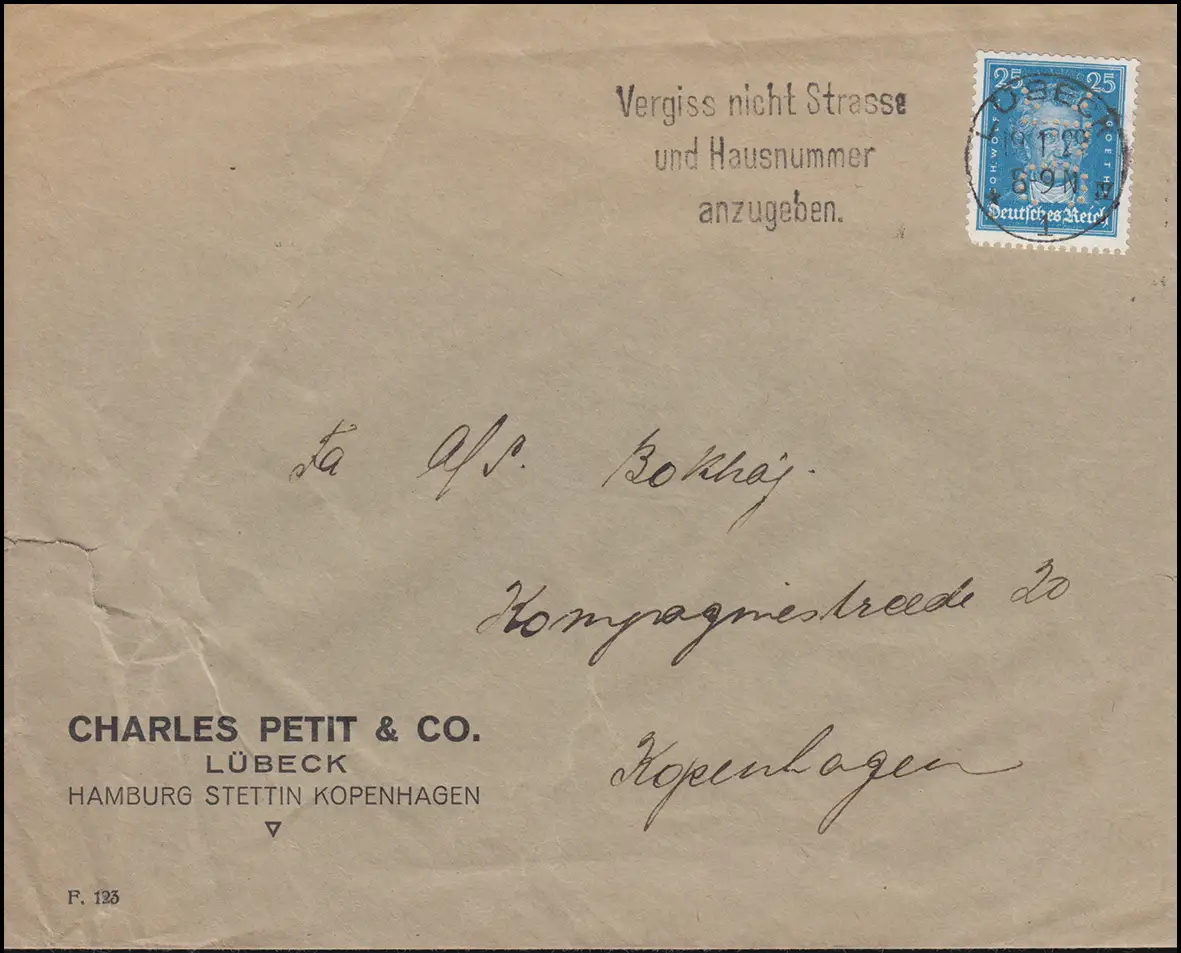 Vergiss nicht Strasse
und Hausnummer
anzugeben.
25 25
JOH. WOLFG. GOETHE
Deutsches Reich
LÜBECK
19.1.29
8-9 N
* IV
1
Fa A/S. Bokhøj.
Kompagniestræde 20
Kopenhagen
CHARLES PETIT & CO.
LÜBECK
HAMBURG STETTIN KOPENHAGEN
F. 123